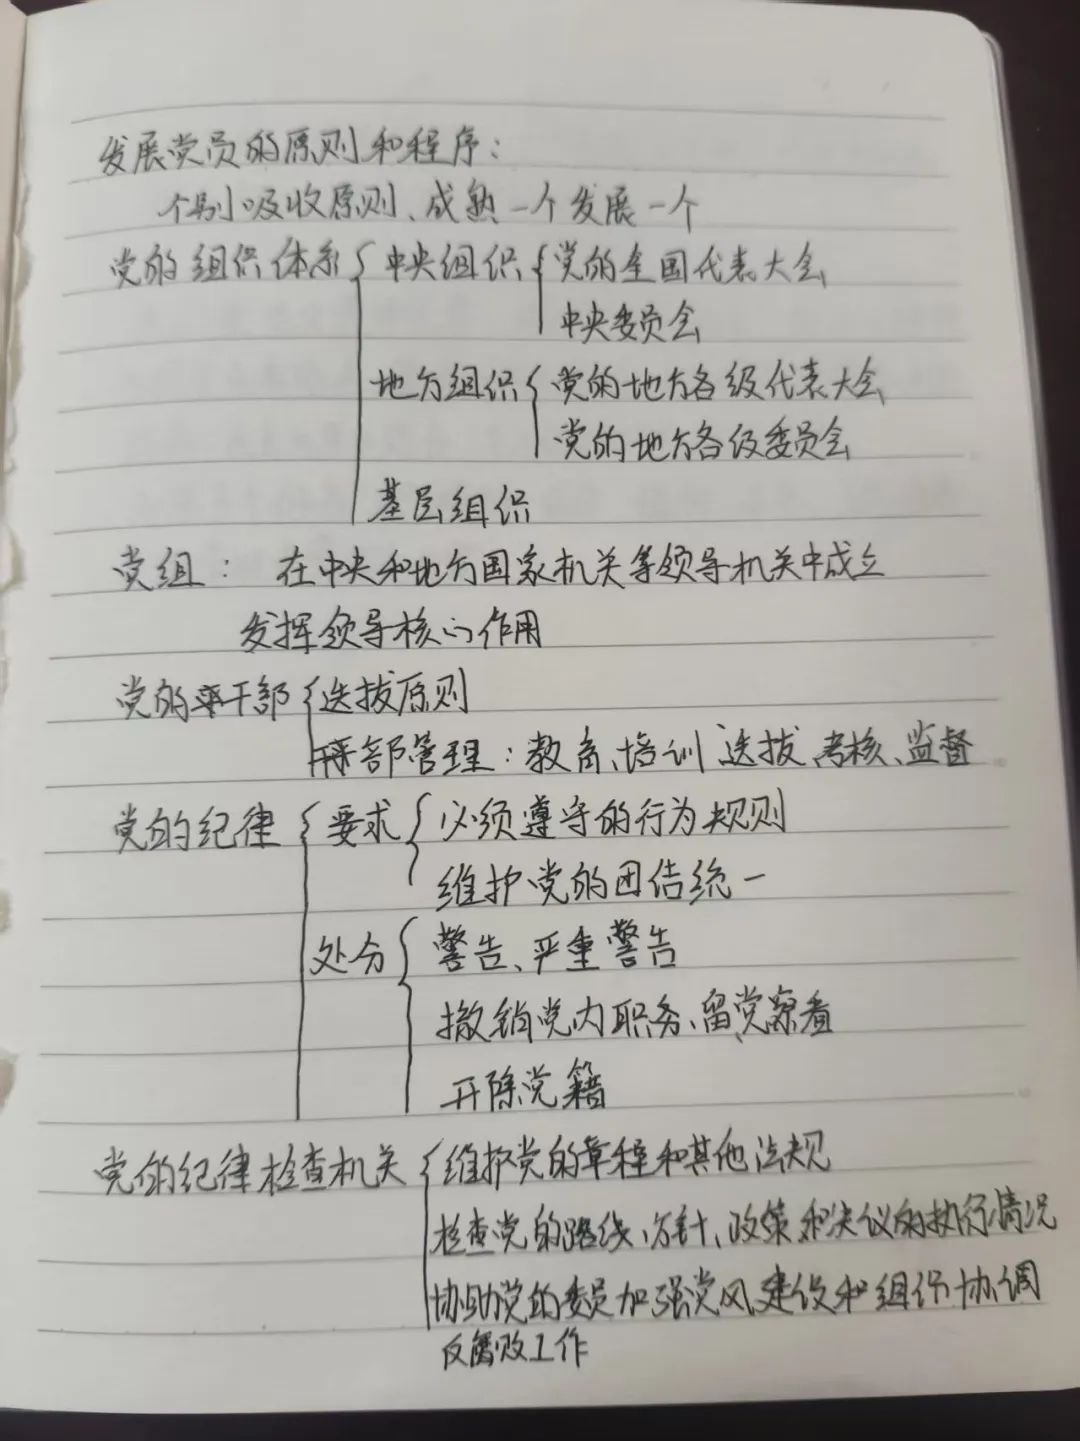 发展党员的原则和程序：
个别吸收原则、成熟一个发展一个
党的组织体系 { 中央组织 { 党的全国代表大会
中央委员会
地方组织 { 党的地方各级代表大会
党的地方各级委员会
基层组织
党组： 在中央和地方国家机关等领导机关中成立
发挥领导核心作用
党的干部 { 选拔原则
部管理：教育、培训 选拔、考核、监督
党的纪律 { 要求 { 必须遵守的行为规则
维护党的团结统一
处分 { 警告、严重警告
撤销党内职务、留党察看
开除党籍
党的纪律检查机关 { 维护党的章程和其他法规
检查党的路线、方针、政策和决议的执行情况
协助党的委员加强党风建设和组织协调
反腐败工作